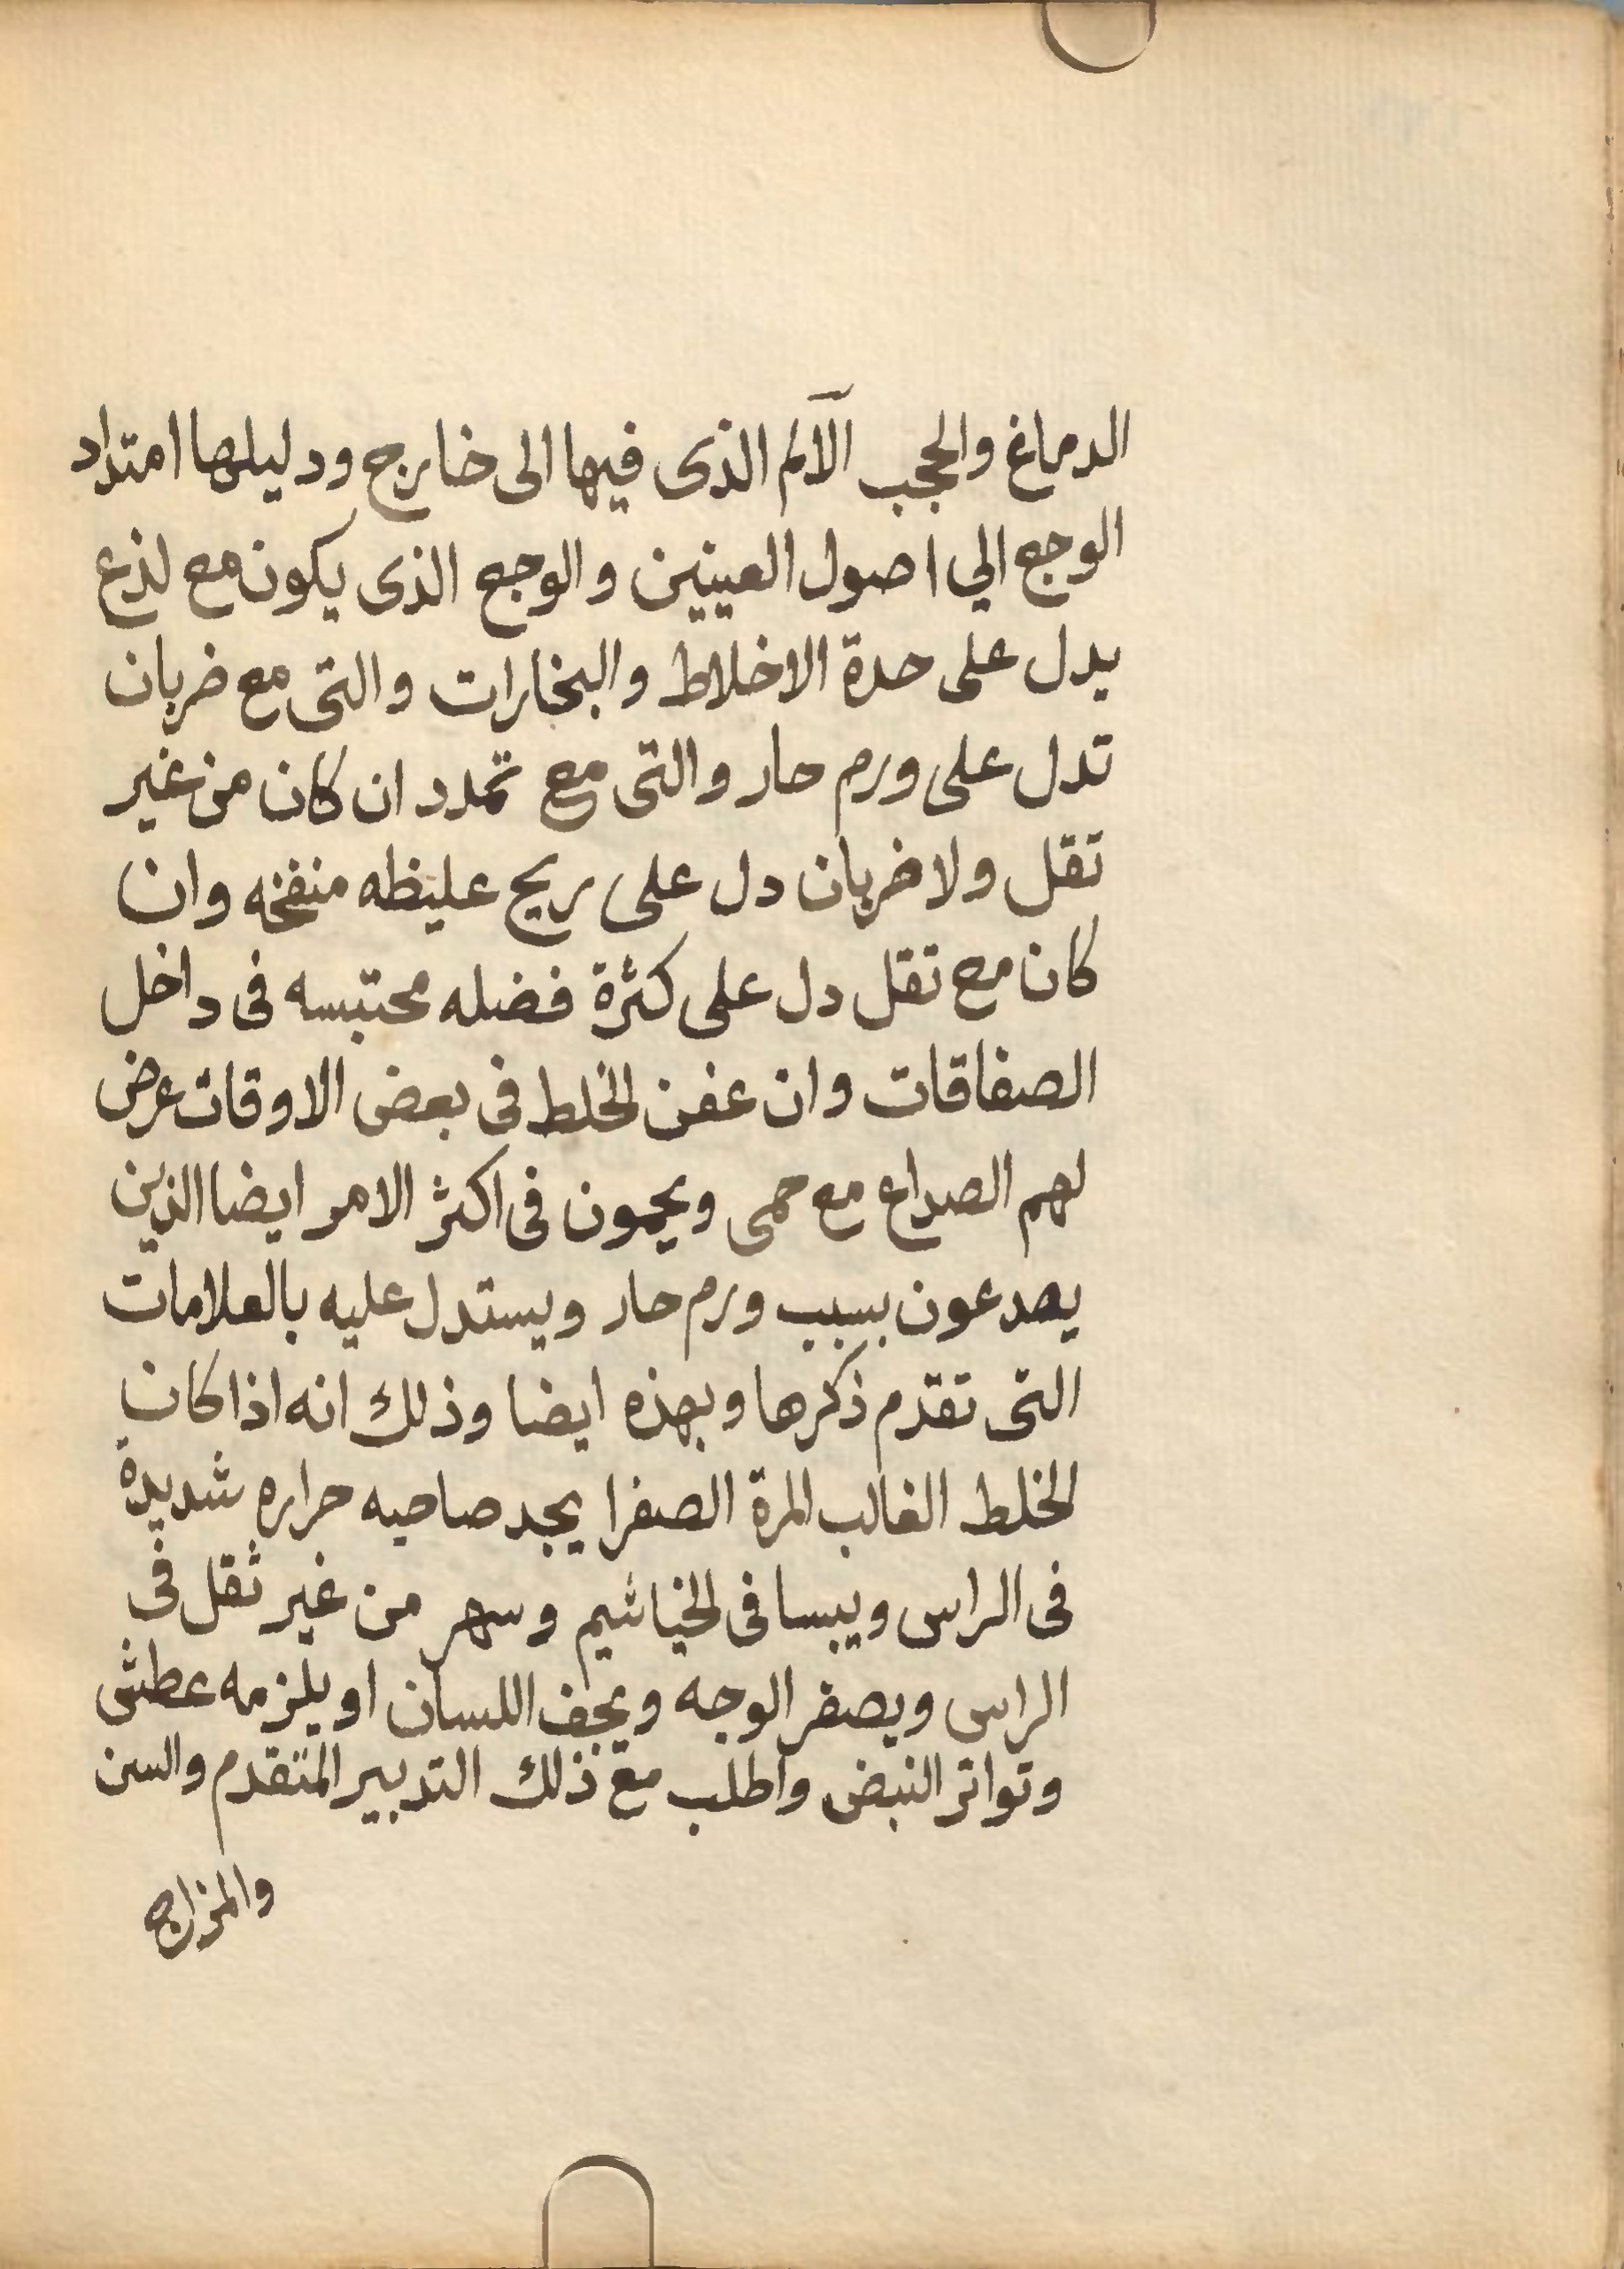 الدماغ والحجب الآلم الذى فيها الى خارج ودليلها امتداد
الوجع الي اصول العينين والوجع الذى يكون مع لذع
يدل على حدة الاخلاط والبخارات والتى مع ضربان
تدل على ورم حار والتى مع تمدد ان كان من غير
تقل ولا ضربان دل على ريح عليظه منفخه وان
كان مع تقل دل على كثرة فضله محتبسه فى داخل
الصفاقات وان عفن الخلط فى بعض الاوقات عرض
لهم الصداع مع حمى ويحمون فى اكثر الامر ايضا الذين
يصدعون بسبب ورم حار ويستدل عليه بالعلامات
التى تقدم ذكرها وبهذه ايضا وذلك انه اذا كان
الخلط الغالب المرة الصفرا يجد صاحبه حراره شديدة
فى الراس ويبسا فى الخياشيم وسهر من غير ثقل فى
الراس ويصفر الوجه ويجف اللسان او يلزمه عطش
وتواتر النبض واطلب مع ذلك التدبير المتقدم والسن
والمزاج